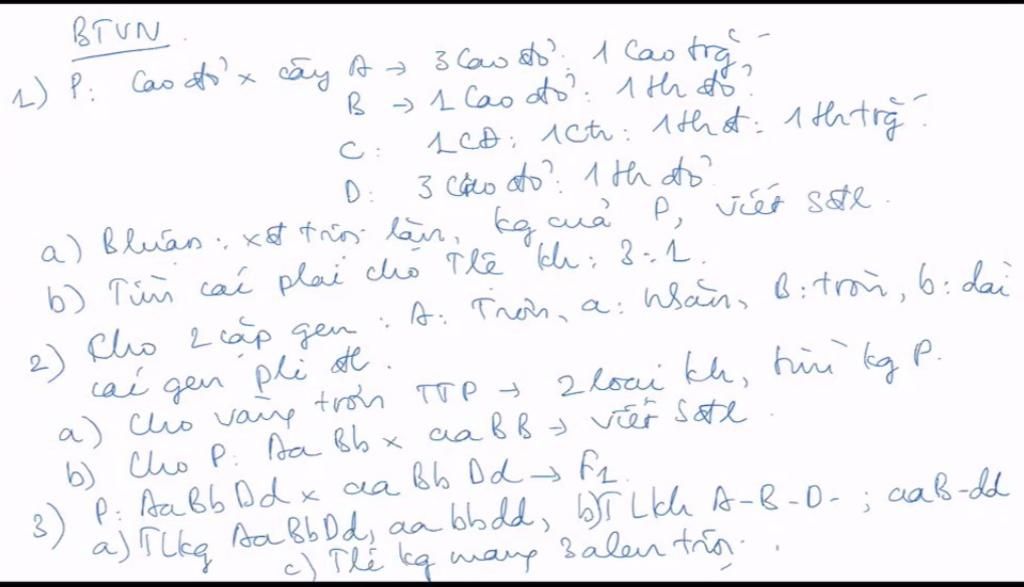 BTVN
1) P: Cao đỏ × cây A → 3 Cao đỏ: 1 Cao trg
B → 1 Cao đỏ: 1 th đỏ
C: 1CĐ: 1Ctr: 1thđ: 1th trg
D: 3 Cao đỏ: 1 th đỏ
a) Bluận: xđ trội lặn, kg của P, viết sđl.
b) Tìm các plai cho Tlệ kh: 3:1.
2) Cho 2 cặp gen: A: Trơn, a: nhăn, B: tròn, b: dài
các gen pli đl.
a) Cho vàng trơn TTP → 2 loại kh, tìm kg P.
b) Cho P: AaBb × aaBB → viết sđl.
3) P: AaBbDd × aaBbDd → F1
a) TLkg AaBbDd, aabbdd, b) TLkh A-B-D-; aaB-dd
c) Tlệ kg mang 3 alen trội.